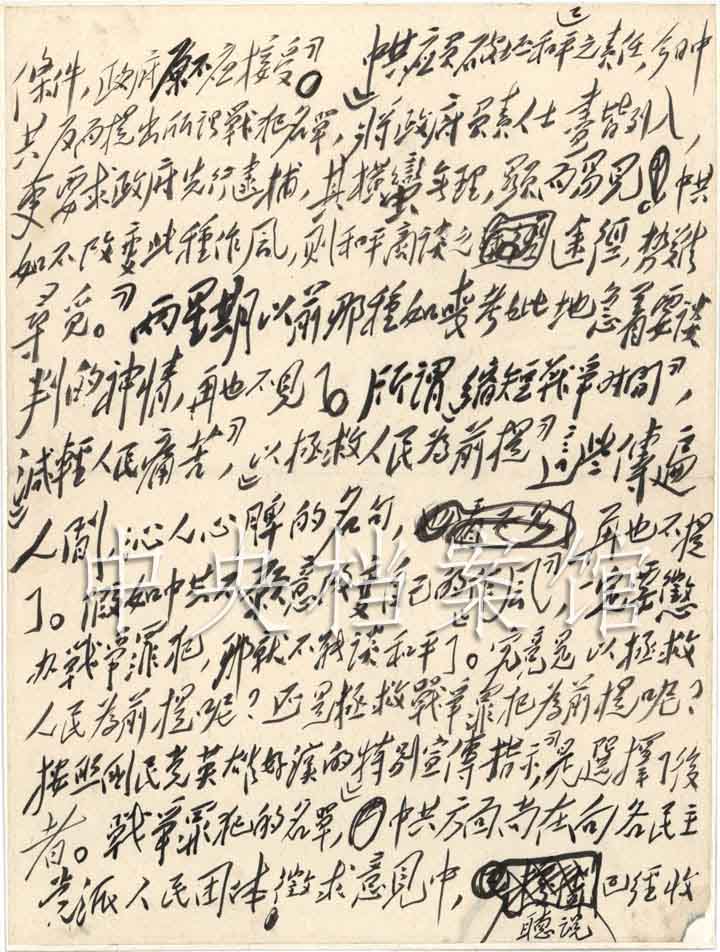 條件，政府原不应接受”。“中共应負破坏和平之責任，今日中
共反而提出所謂戰犯名單，將政府負責人士盡皆列入，
更要求政府先行逮捕，其橫蠻無理，顯而易見！中共
如不改变此種作風，則和平商談之途徑，势難
尋覓。”两星期以前那種如喪考妣地急着要談
判的神情，再也不見了。所謂“縮短戰爭時間”，
“減輕人民痛苦”，“以拯救人民為前提”這些傳遍
人間，沁人心脾的名句，再也不提
了。假如中共不願意改变自己的“作風”，一定要懲
办戰爭罪犯，那就不能談和平了。究竟是以拯救
人民為前提呢？还是拯救戰爭罪犯為前提呢？
按照國民党英雄好漢的“特別宣傳指示”，是選擇了後
者。戰爭罪犯的名單，中共方面尚在向各民主
党派人民团体徵求意見中，已經收
聽說
中央档案馆